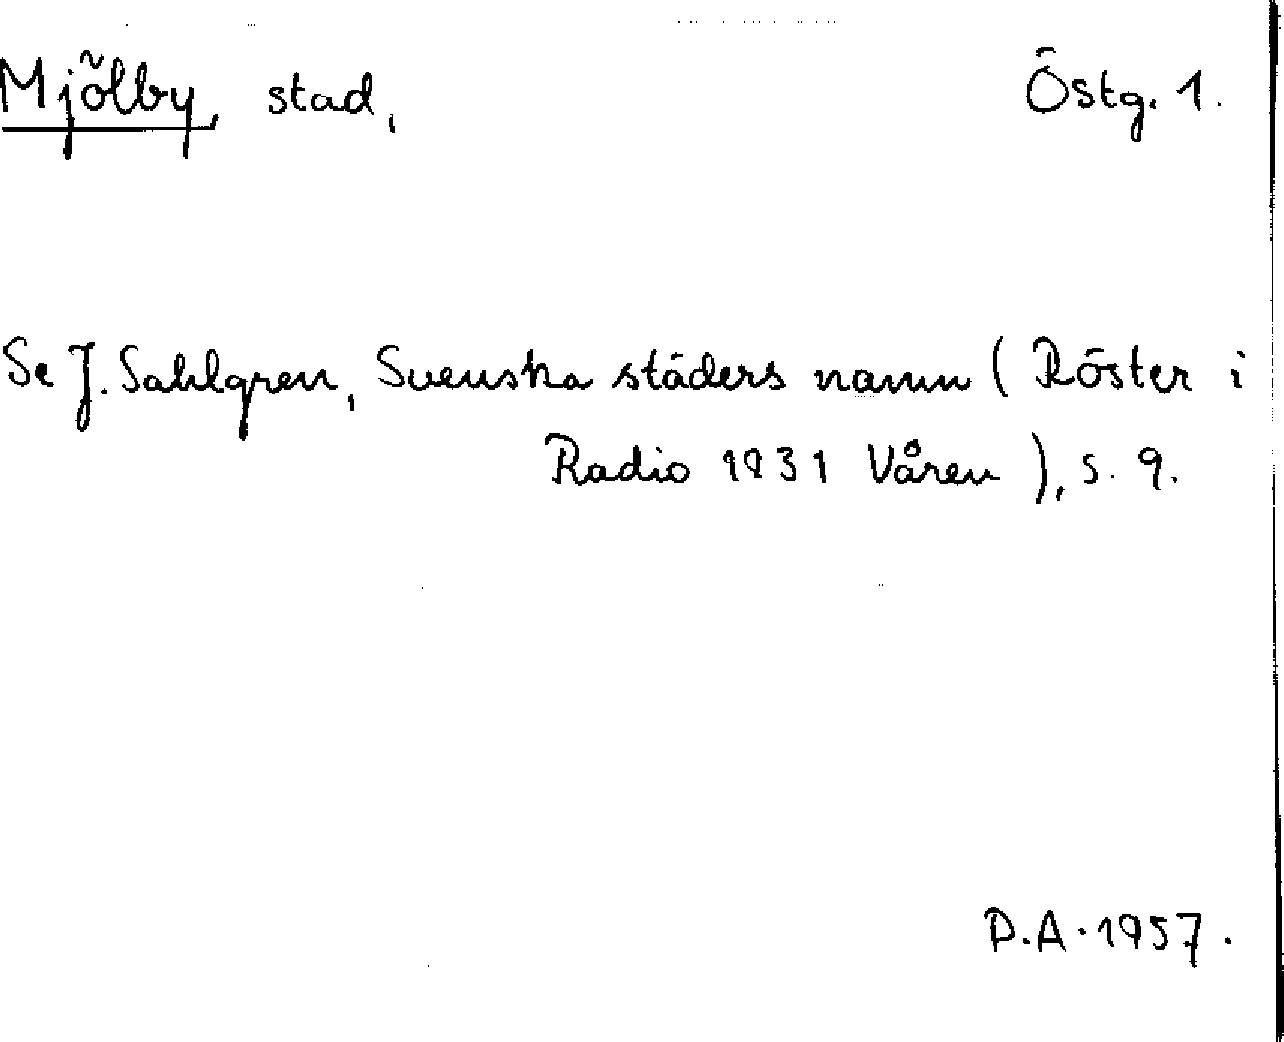 Mjölby, stad, Östg. 1.
Se J. Sahlgren, Svenska städers namn (Röster i
Radio 1931 Våren), s. 9.
D.A. 1957.